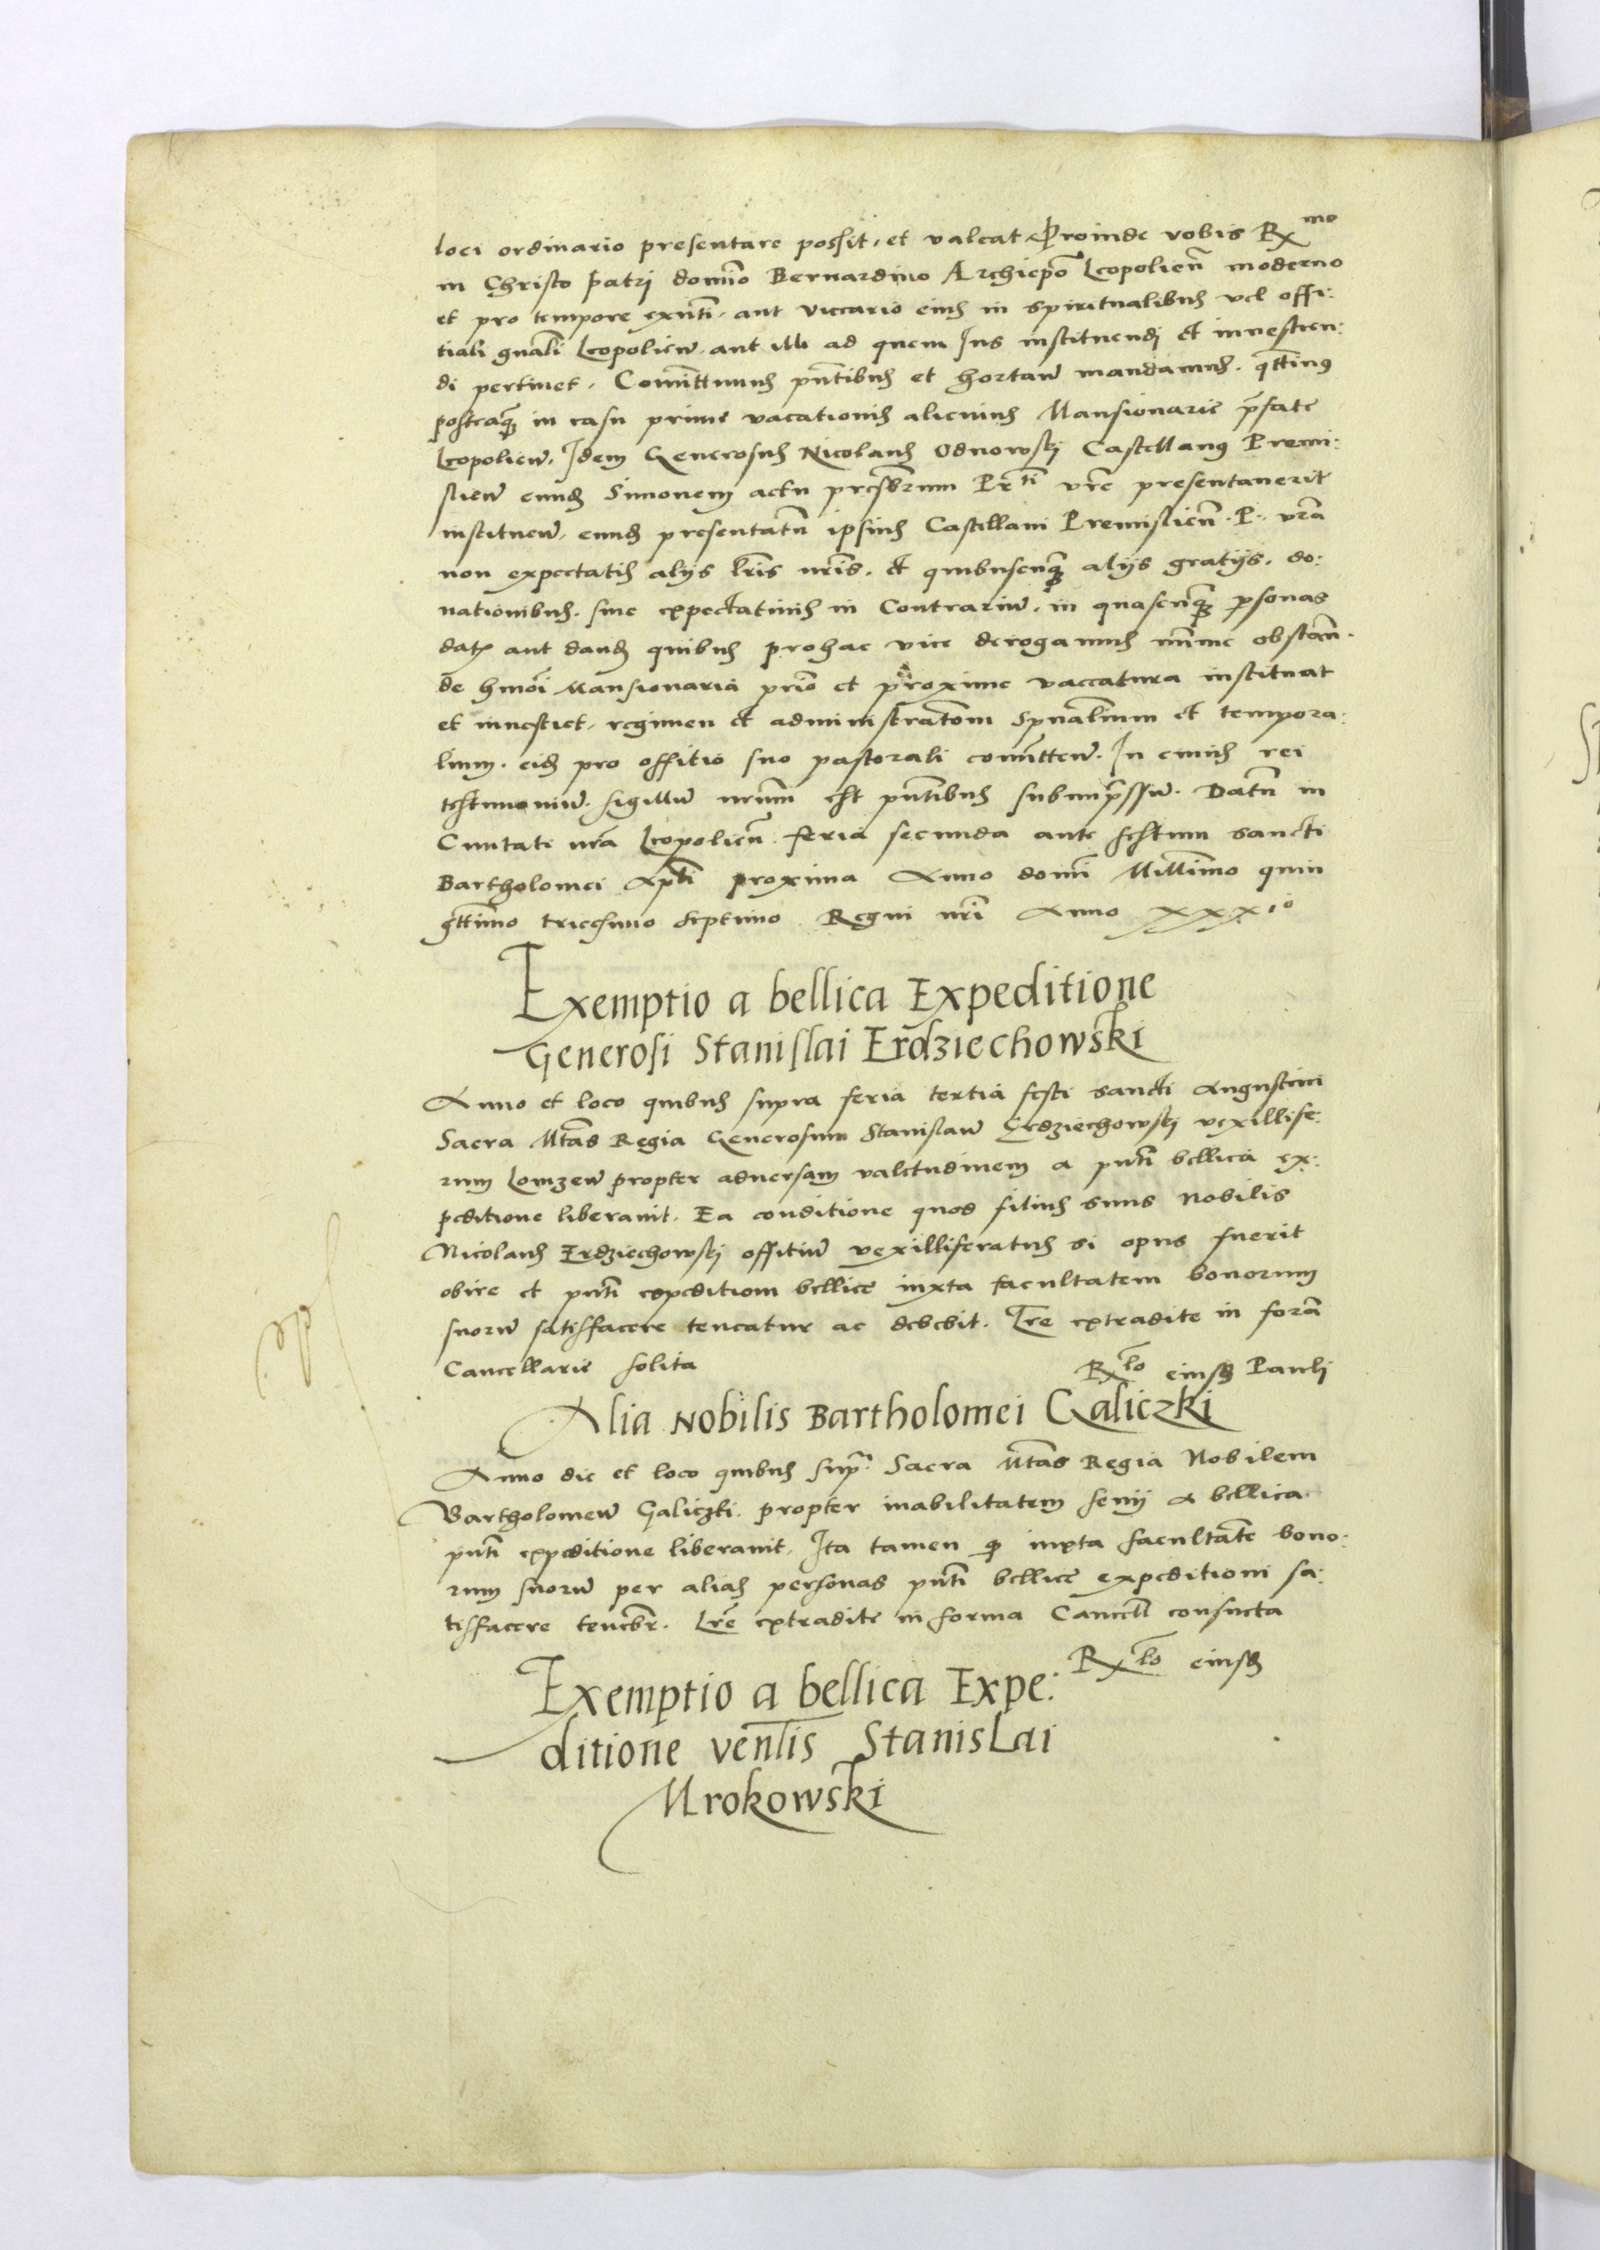 loci ordinario presentare possit, et valeat. Proinde vobis Rx mo
in Christo patri domino Bernardino Archiepo Leopolien moderno
et pro tempore exnti, aut viccario eius in spiritualibus vel offi:
tiali gnali Leopolien, aut illi ad quem Ius instituendi et investien:
di pertinet. Comittimus pntibus et hortam mandamus, qttinus
posteaq in casu prime vacationis alicuius Mansionarie pfate
Leopolien, Idem Generosus Nicolaus Odnowski Castellanus Premi:
slien eund Simonem actu presbrum Prti vre presentaverit
instituem, eund presentatu ipsius Castellani Premislien P. vra
non expectatis alys lris nris, et quibuscunq alijs gratijs, do:
nationibus, sive expectativis in Contrarium, in quascunq psonas
datis aut dand quibus pro hac vice derogamus mime obstan.
de hmoi Mansionaria prio et proxime vaccatura instituat
et investiet, regimen et administratom spualium et tempora:
lium, eid pro offitio suo pastorali comitten. In cuius rei
testimonium, sigillum nrum est pntibus subimpssum. Datu in
Civitate nra Leopolien feria secunda ante festum sancti
Bartholomei Apti proxima Anno domi Millimo quin
gttimo tricesimo septimo Regni nri Anno XXXIo
Exemptio a bellica Expeditione
Generosi Stanislai Erdziechowski
Anno et loco quibus supra feria tertia festi sancti Augustini
Sacra Mtas Regia Generosum Stanislaum Erdziechowski vexillife:
rum Lomzen propter adversam valetudinem a pnti bellica ex:
peditione liberavit. Ea conditione quod filius suus Nobilis
Nicolaus Erdziechowski offitium vexilliferatus si opus fuerit
obire et pnti expeditioni bellice iuxta facultatem bonorum
suorum satisfacere teneatur ac debebit. Lre extradite in fora
Cancellarie solita
Rx lo eiusd Pauli
Alia Nobilis Bartholomei Galiczki
Anno die et loco quibus supr. Sacra Mtas Regia Nobilem
Bartholomeum Galiczki propter inabilitatem senij a bellica
pnti expeditione liberavit. Ita tamen q iuxta facultate bono:
rum suorum per alias personas pnti bellice expeditioni sa:
tisfacere tenebr. Lre extradite in forma Cancell consueta
Rx lo eiusd
Exemptio a bellica Expe:
ditione ventis Stanislai
Mrokowski